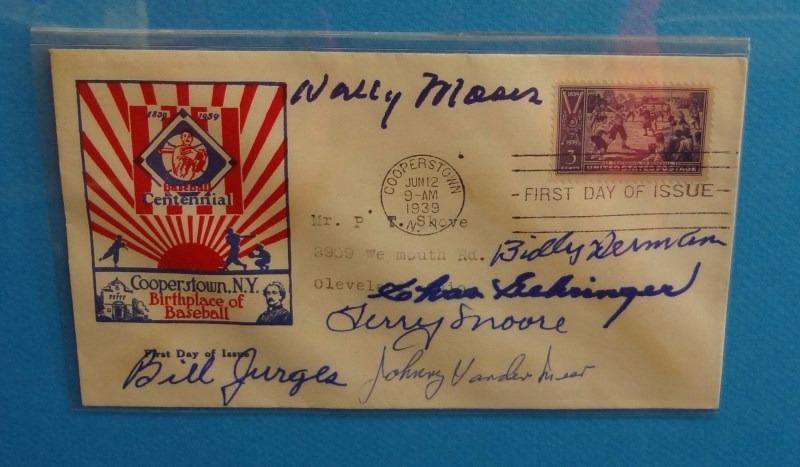 Wally Moses
1839 1939
Baseball
Centennial
COOPERSTOWN
JUN 12
9-AM
1939
N.Y.
3 CENTS
UNITED STATES POSTAGE
FIRST DAY OF ISSUE
Mr. P. T. Shove
2909 Weymouth Rd.
Billy Herman
Cooperstown, N.Y.
Birthplace of
Baseball
Chas Gehringer
Terry Moore
First Day of Issue
Bill Jurges
Johnny Vander Meer